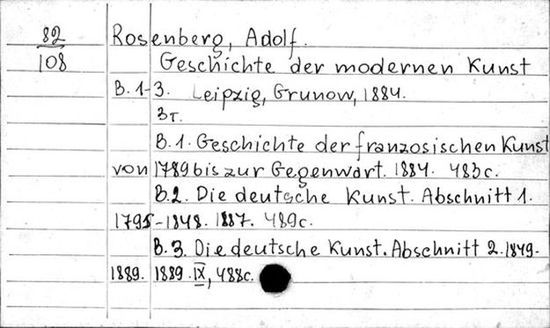 82
108
Rosenberg, Adolf.
Geschichte der modernen Kunst
B. 1-3. Leipzig, Grunow, 1884.
3т.
B.1. Geschichte der franzosischen Kunst
von 1789 bis zur Gegenwart. 1884. 483c.
B.2. Die deutsche Kunst. Abschnitt 1.
1795-1848. 1887. 489c.
B.3. Die deutsche Kunst. Abschnitt 2. 1849-
1889. 1889. IX, 488c.